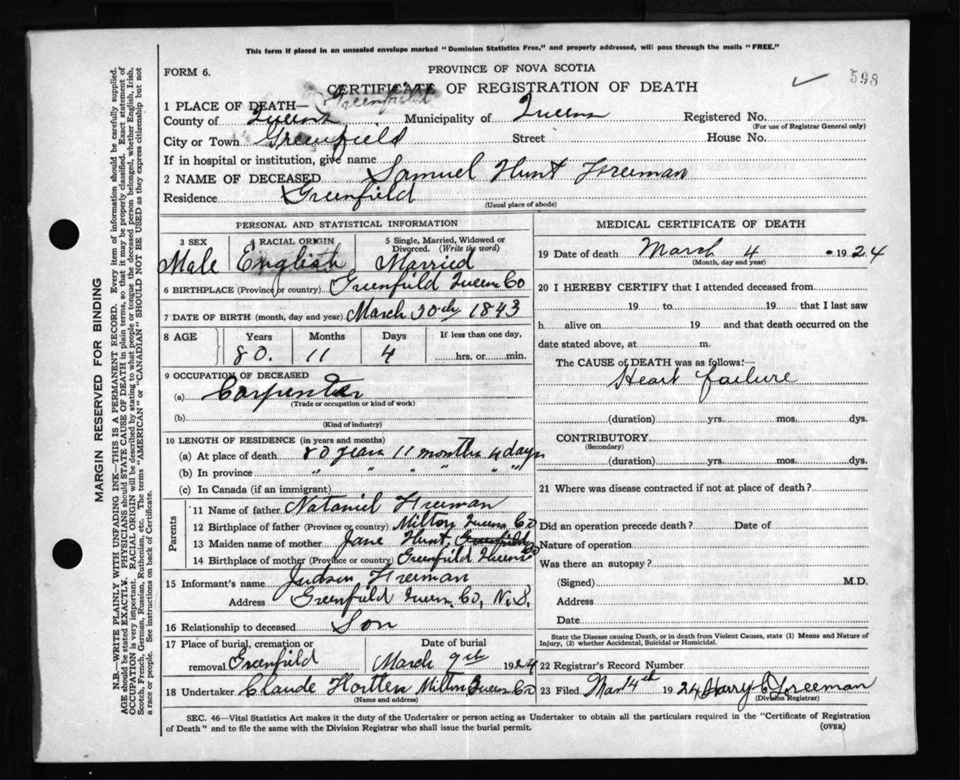 This form if placed in an unsealed envelope marked "Dominion Statistics Free," and properly addressed, will pass through the mails "FREE."
FORM 6.
PROVINCE OF NOVA SCOTIA
598
CERTIFICATE OF REGISTRATION OF DEATH
1 PLACE OF DEATH— Greenfield
County of Queens Municipality of Queens Registered No.
(For use of Registrar General only)
City or Town Greenfield Street House No.
If in hospital or institution, give name
2 NAME OF DECEASED Samuel Hunt Freeman
Residence Greenfield
(Usual place of abode)
PERSONAL AND STATISTICAL INFORMATION
3 SEX 4 RACIAL ORIGIN 5 Single, Married, Widowed or Divorced. (Write the word)
Male English Married
6 BIRTHPLACE (Province or country) Greenfield Queens Co
7 DATE OF BIRTH (month, day and year) March 30th 1843
8 AGE Years Months Days If less than one day,
80. 11 4 hrs. or min.
9 OCCUPATION OF DECEASED
(a) Carpenter
(Trade or occupation or kind of work)
(b)
(Kind of industry)
10 LENGTH OF RESIDENCE (in years and months)
(a) At place of death 80 years 11 months 4 days
(b) In province " " " " "
(c) In Canada (if an immigrant)
Parents
11 Name of father Nataniel Freeman
12 Birthplace of father (Province or country) Milton Queens Co
13 Maiden name of mother Jane Hunt Greenfield
14 Birthplace of mother (Province or country) Greenfield Queens Co
15 Informant's name Judson Freeman
Address Greenfield Queens Co, N.S.
16 Relationship to deceased Son
17 Place of burial, cremation or removal Greenfield Date of burial March 9th 1924
18 Undertaker Claude Milton Queens Co
(Name and address)
MEDICAL CERTIFICATE OF DEATH
19 Date of death March 4 1924
(Month, day and year)
20 I HEREBY CERTIFY that I attended deceased from
19 to 19 that I last saw
h alive on 19 and that death occurred on the
date stated above, at m.
The CAUSE of DEATH was as follows:
Heart failure
(duration) yrs. mos. dys.
CONTRIBUTORY
(Secondary)
(duration) yrs. mos. dys.
21 Where was disease contracted if not at place of death?
Did an operation precede death? Date of
Nature of operation
Was there an autopsy?
(Signed) M.D.
Address
Date
State the Disease causing Death, or in death from Violent Causes, state (1) Means and Nature of
Injury, (2) whether Accidental, Suicidal or Homicidal.
22 Registrar's Record Number
23 Filed Mar 4th 1924 Harry C Freeman
(Division Registrar)
SEC. 46—Vital Statistics Act makes it the duty of the Undertaker or person acting as Undertaker to obtain all the particulars required in the "Certificate of Registration
of Death" and to file the same with the Division Registrar who shall issue the burial permit.
(OVER)
MARGIN RESERVED FOR BINDING
N.B.—WRITE PLAINLY, WITH UNFADING INK—THIS IS A PERMANENT RECORD. Every item of information should be carefully supplied.
AGE should be stated EXACTLY. PHYSICIANS should STATE CAUSE OF DEATH in plain terms, so that it may be properly classified. Exact statement of
OCCUPATION is very important. RACIAL ORIGIN will be described by stating to what people or tongue the deceased person belonged, whether English, Irish,
Scotch, French, German, Russian, Ruthenian, etc. The terms "AMERICAN" or "CANADIAN" SHOULD NOT BE USED as they express citizenship but not
a race or people. See instructions on back of Certificate.